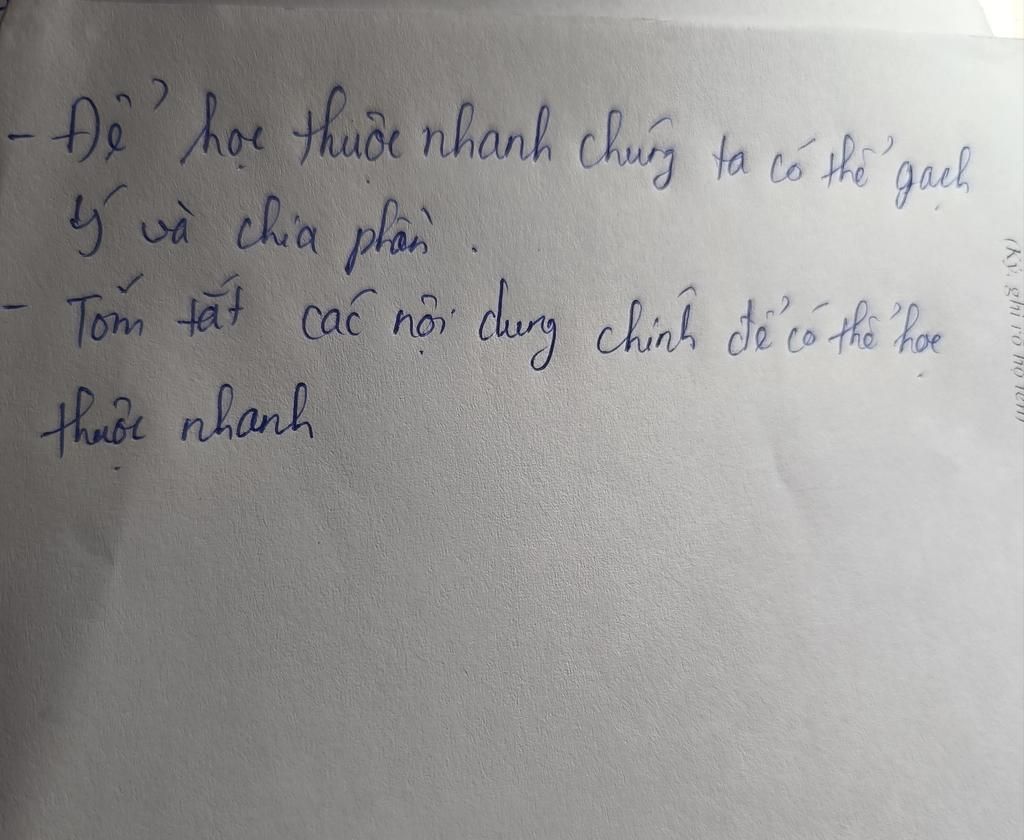 - Để học thuộc nhanh chúng ta có thể gạch
ý và chia phần.
- Tóm tắt các nội dung chính để có thể học
thuộc nhanh
(Ký, ghi rõ họ tên)